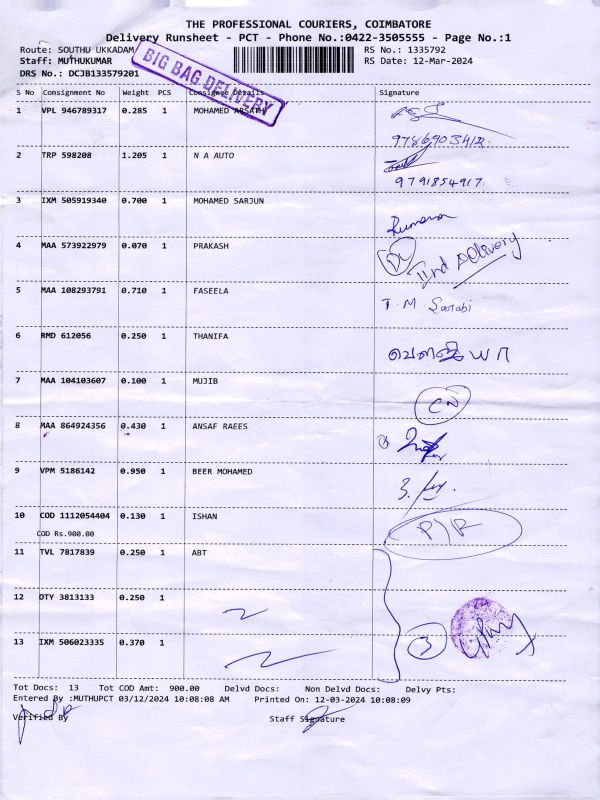 THE PROFESSIONAL COURIERS, COIMBATORE
Delivery Runsheet - PCT - Phone No.:0422-3505555 - Page No.:1
Route: SOUTHU UKKADAM RS No.: 1335792
Staff: MUTHUKUMAR RS Date: 12-Mar-2024
DRS No.: DCJB133579201
BIG BAG DELIVERY
S No Consignment No Weight PCS Consignee Details Signature
1 VPL 946789317 0.285 1 MOHAMED ARSATH
2 TRP 598208 1.205 1 N A AUTO
9791854917
3 IXM 505919340 0.700 1 MOHAMED SARJUN
4 MAA 573922979 0.070 1 PRAKASH
IInd Delivery
5 MAA 108293791 0.710 1 FASEELA
T. M
6 RMD 612056 0.250 1 THANIFA
7 MAA 104103607 0.100 1 MUJIB
CN
8 MAA 864924356 0.430 1 ANSAF RAEES
9 VPM 5186142 0.950 1 BEER MOHAMED
10 COD 1112054404 0.130 1 ISHAN
COD Rs.900.00
P)R
11 TVL 7817839 0.250 1 ABT
12 DTY 3813133 0.250 1
3
13 IXM 506023335 0.370 1
Tot Docs: 13 Tot COD Amt: 900.00 Delvd Docs: Non Delvd Docs: Delvy Pts:
Entered By :MUTHUPCT 03/12/2024 10:08:08 AM Printed On: 12-03-2024 10:08:09
Verified By Staff Signature